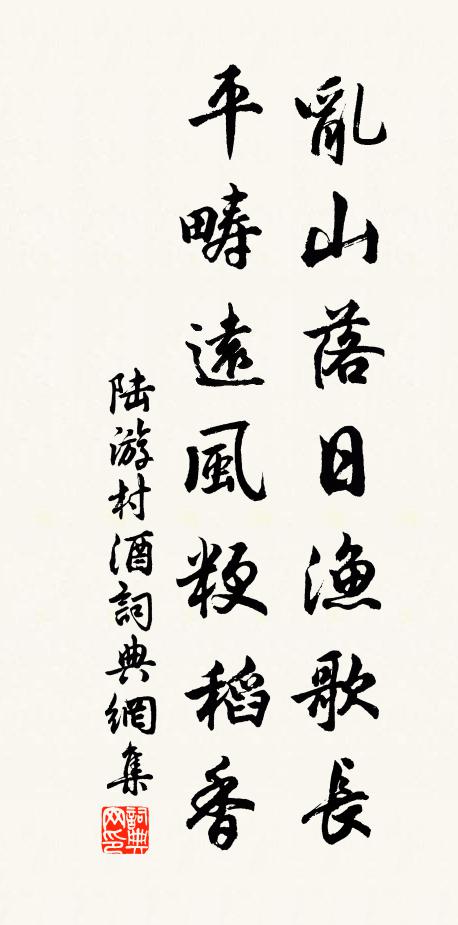 亂山落日漁歌長
平疇遠風粳稻香
陆游村酒詞典網集
詞典网印